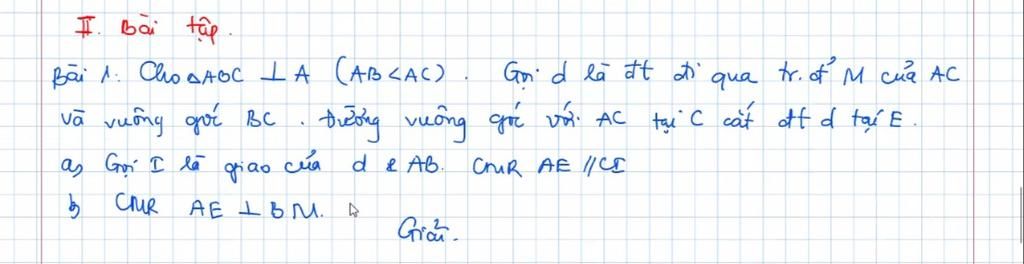 II. Bài tập.
Bài 1. Cho ΔABC ⊥ A (AB < AC). Gọi d là đt đi qua tr. đ' M của AC
và vuông góc BC. Đường vuông góc với AC tại C cắt đt d tại E.
a, Gọi I là giao của d & AB. CMR AE // CI
b, CMR AE ⊥ BM.
Giải.